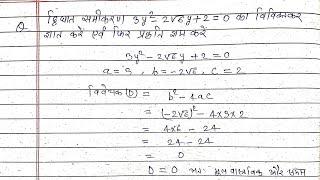 Q द्विघात समीकरण 3y²-2√6y+2=0 का विविक्तकर
ज्ञात करें एवं फिर प्रकृति ज्ञात करें
3y²-2√6y+2=0
a=3, b=-2√6, c=2
विवेचक(D) = b²-4ac
= (-2√6)²-4×3×2
= 4×6-24
= 24-24
= 0
D=0 अतः मूल वास्तविक और समान